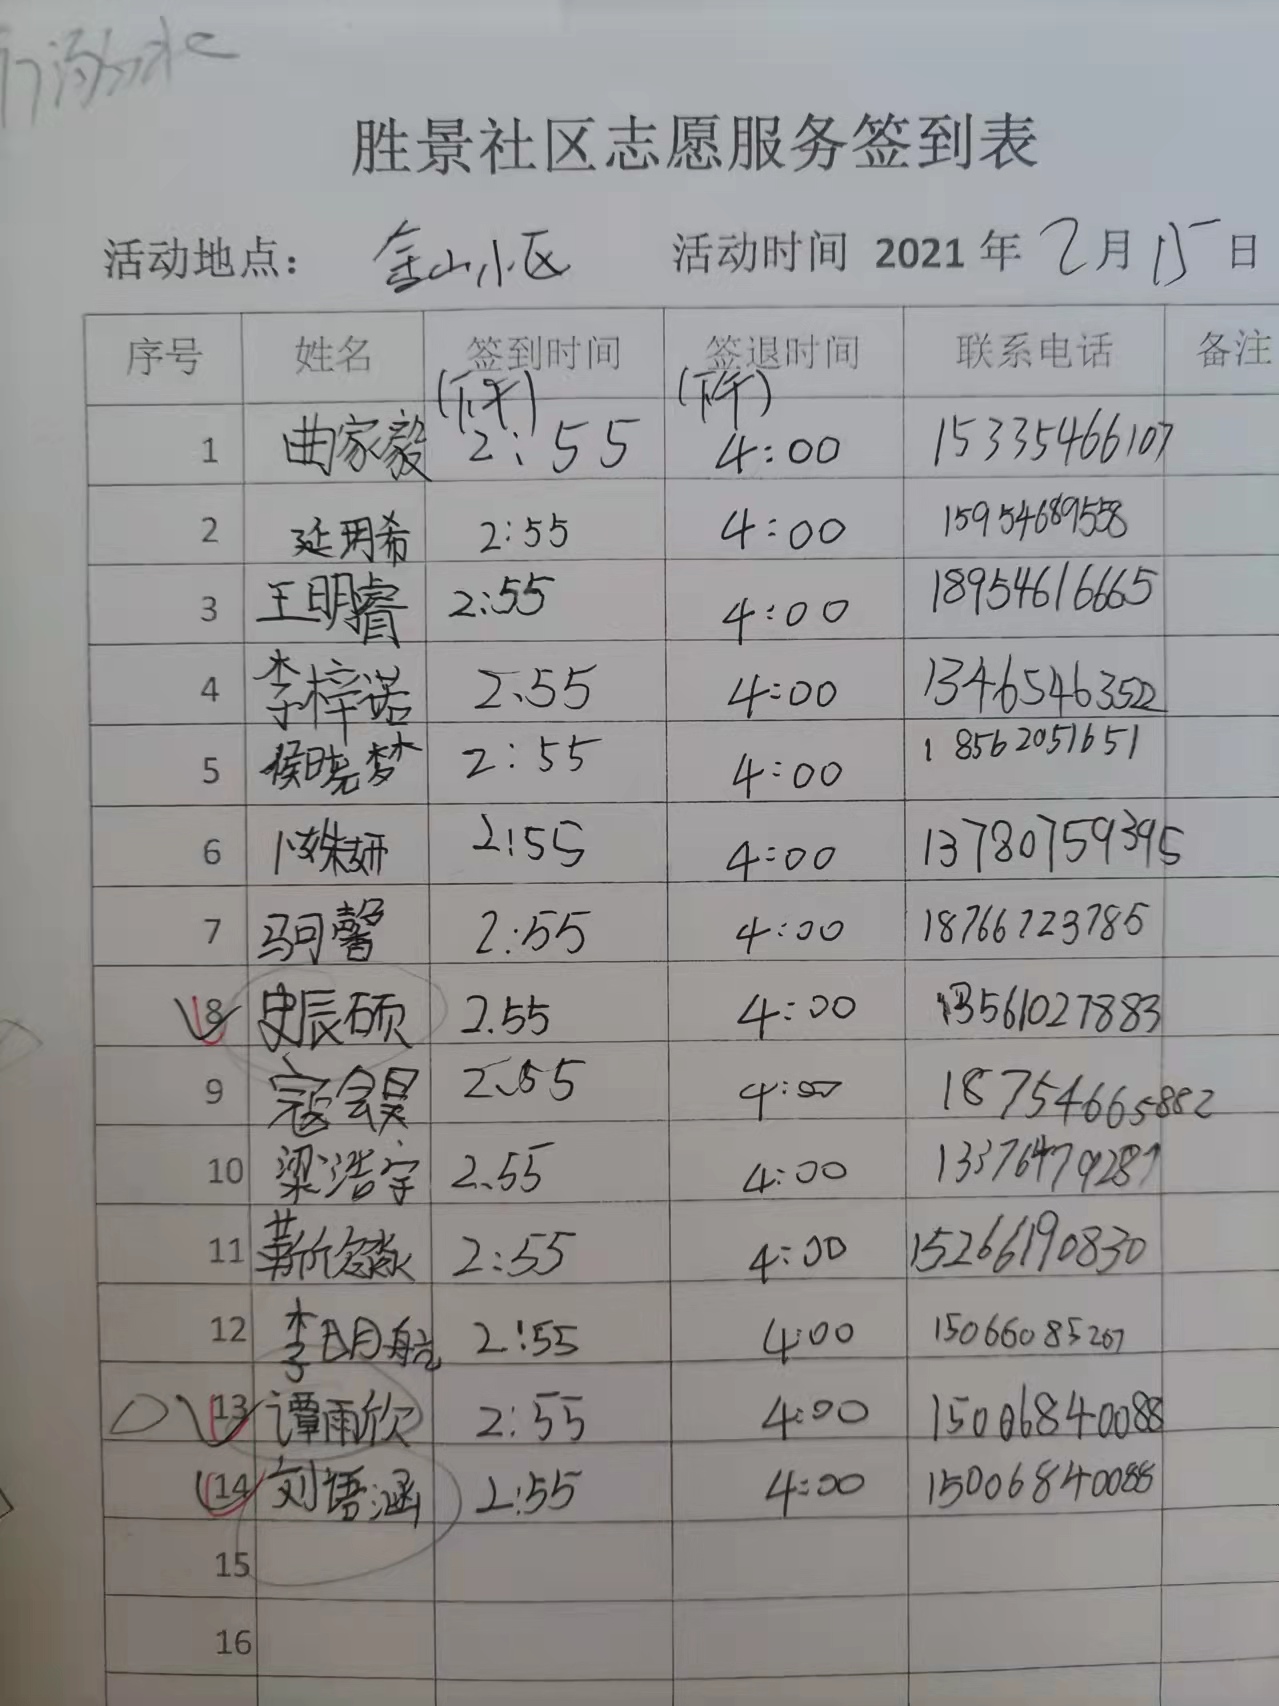 防溺水
胜景社区志愿服务签到表
活动地点： 金山小区 活动时间 2021 年 2 月 15 日
序号 姓名 签到时间 签退时间 联系电话 备注
(下午) (下午)
1 曲家毅 2:55 4:00 15335466107
2 延玥希 2:55 4:00 15954689558
3 王明睿 2:55 4:00 18954616665
4 李梓诺 2:55 4:00 13465463522
5 侯晓梦 2:55 4:00 18562051651
6 卜姝妍 2:55 4:00 13780759395
7 冯可馨 2:55 4:00 18766723785
8 史辰硕 2.55 4:00 13561027883
9 寇会昊 2.55 4:00 18754665882
10 梁浩宇 2.55 4:00 13376479287
11 2:55 4:00 15266190830
12 李明航 2:55 4:00 15066085207
13 谭雨欣 2:55 4:00 15006840088
14 刘语涵 2:55 4:00 15006840088
15
16